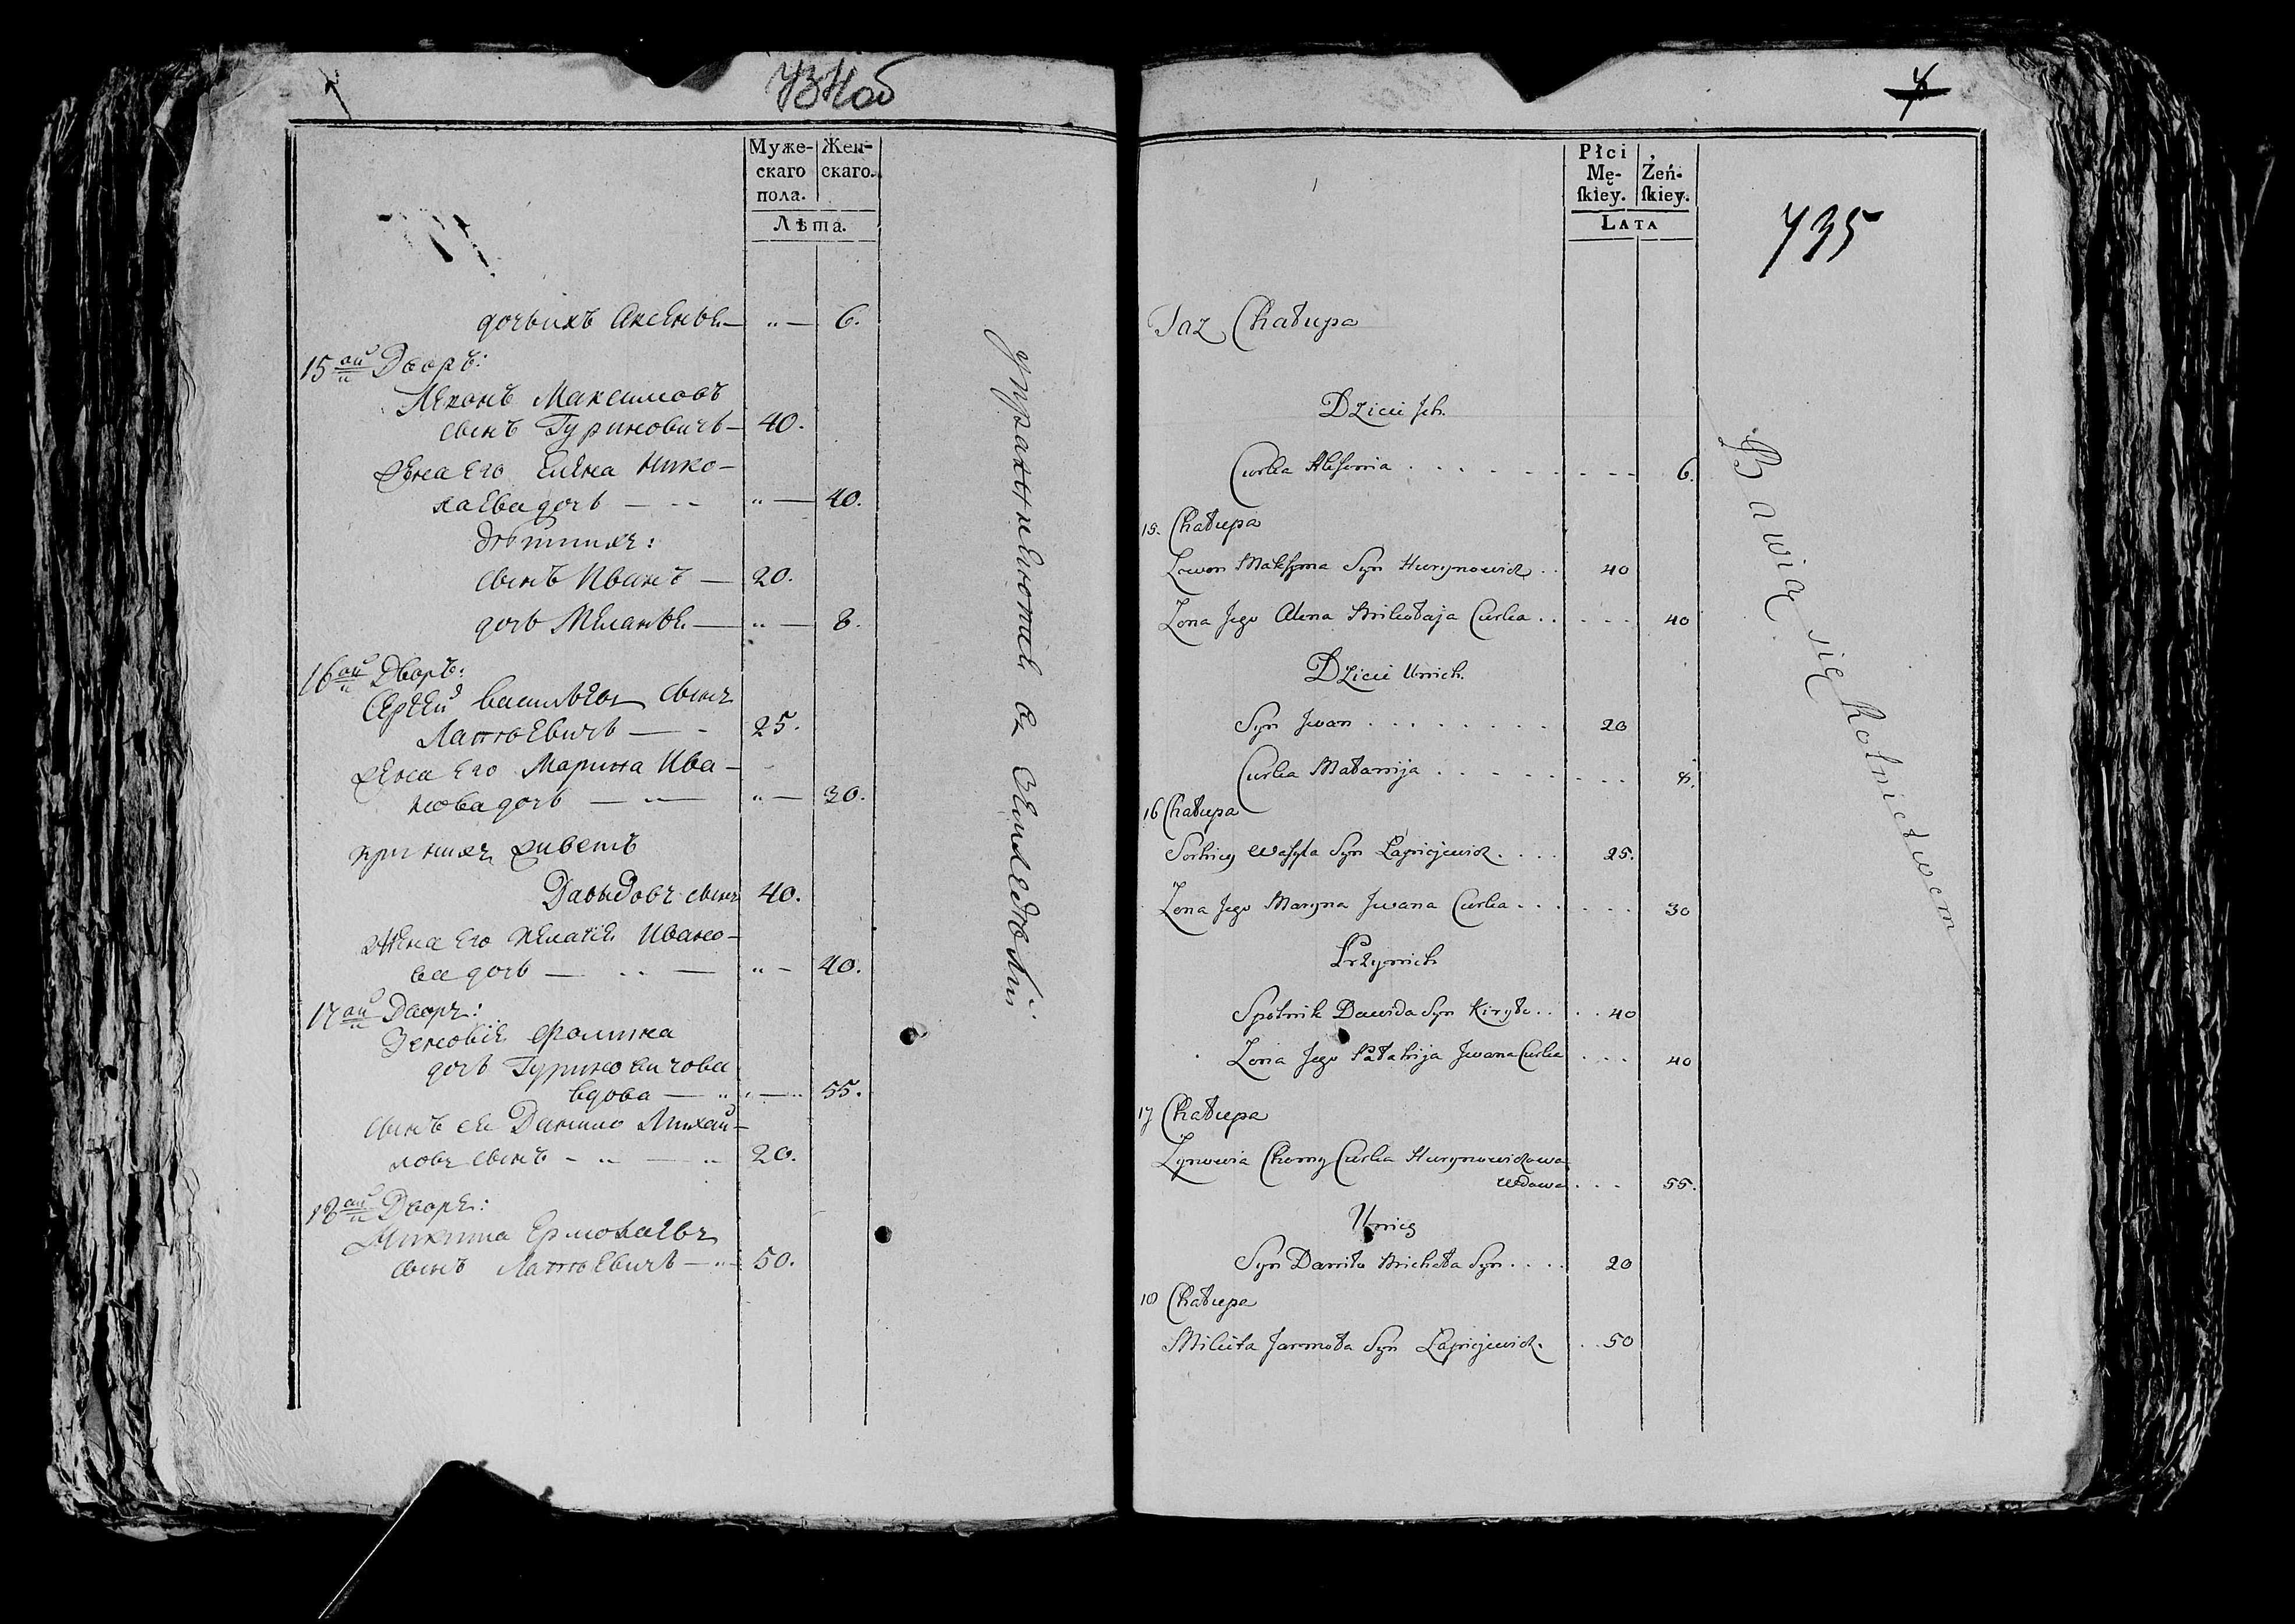 734об
Муже-
скаго
пола.
Жен-
скаго.
Лѣта.
дочь ихъ Аксенья — „ — 6.
15ой Дворъ:
Леконъ Максимовъ
сынъ Гуриновичъ — 40.
жена его Елена Нико-
лаева дочь — „ — 40.
дѣти ихъ:
сынъ Иванъ — 20.
дочь Меланья — „ — 8.
16ой Дворъ:
Сергей Васильевъ сынъ
Лаппѣевичъ — 25.
жена его Марина Ива-
нова дочь — „ — „ — 30.
при нихъ живетъ
Давыдовъ сынъ 40.
жена его Пелагея Ивано-
ва дочь — „ — „ — 40.
17ой Дворъ:
Зеновія Фомина
дочь Гуриновичова
вдова — „ — 55.
сынъ ее Данило Михай-
ловъ сынъ — „ — „ 20.
18ой Дворъ:
Микита Ермолаевъ
сынъ Лаппѣевичъ — „ — 50.
упражняются въ земледѣліи
7
735
Płci
Mę-
ſkiey.
Żeń-
ſkiey.
LATA
Taz Chałupa
Dzieci Jch.
Curka Aksienia . . . . . 6.
15. Chałupa
Lewon Maksyma Syn Hurynowicz . . 40
Zona Jego Alena Mikołaja Curka . . . . . 40
Dzieci Unich.
Syn Jwan . . . . . . . 20
Curka Małanija . . . . . . . 8.
16 Chałupa
Serhiey Wasyla Syn Łapiejewicz . . . . 25.
Zona Jego Maryna Jwana Curka . . . . . . 30
Przynich
Społnik Dawida Syn Kiryło . . . . 40
Zona Jego Pałahija Jwana Curka . . . 40
17 Chałupa
Zynowia Chomy Curka Hurynowiczowa
wdowa . . . 55.
Uniey
Syn Daniło Michała Syn . . . . 20
18 Chałupa
Mikita Jarmoła Syn Łapiejewicz . . . 50
Bawią się Rolnictwem